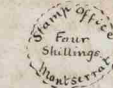 Stamp Office
Four
Shillings
Montserrat